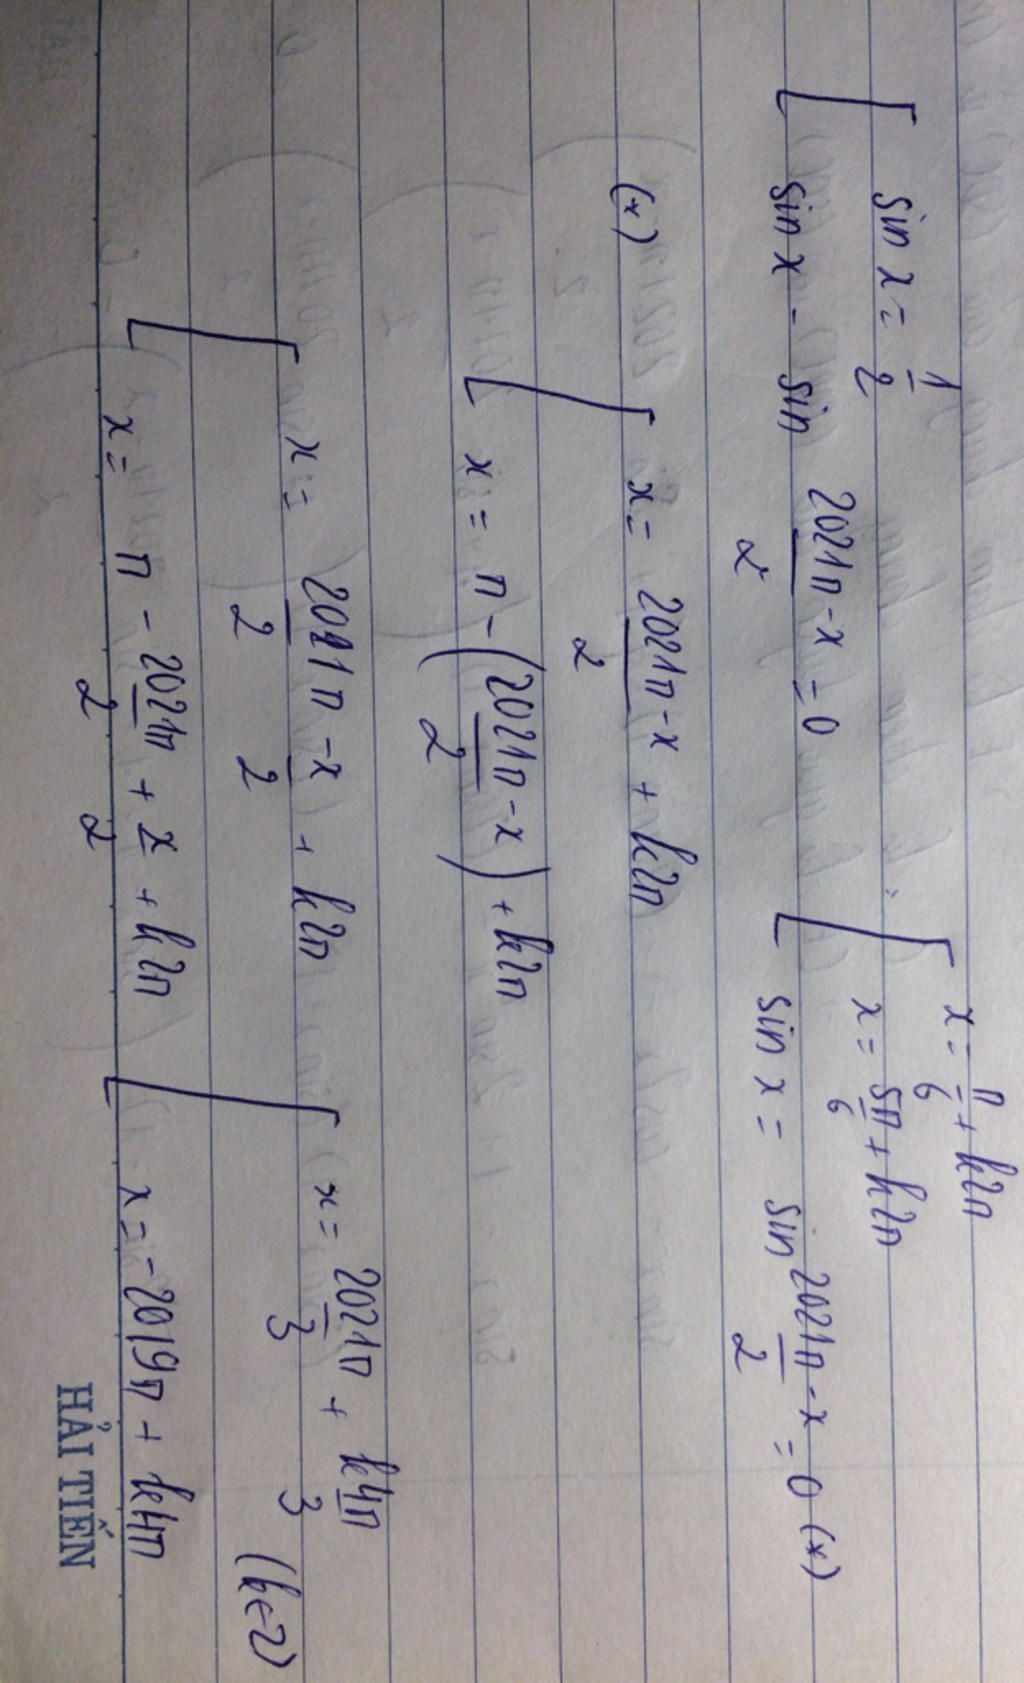 sin x = 1/2
sin x - sin (2021π - x)/2 = 0
x = π/6 + k2π
x = 5π/6 + k2π
sin x = sin (2021π - x)/2 = 0 (*)
(*) x = (2021π - x)/2 + k2π
x = π - ((2021π - x)/2) + k2π
x = 2021π/2 - x/2 + k2π
x = π - 2021π/2 + x/2 + k2π
x = 2021π/3 + k4π/3
x = -2019π + k4π
(k∈Z)
HẢI TIẾN